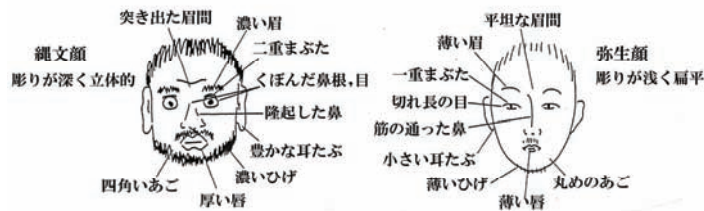 縄文顔
彫りが深く立体的
突き出た眉間
濃い眉
二重まぶた
くぼんだ鼻根,目
隆起した鼻
豊かな耳たぶ
濃いひげ
厚い唇
四角いあご
弥生顔
彫りが浅く扁平
平坦な眉間
薄い眉
一重まぶた
切れ長の目
筋の通った鼻
小さい耳たぶ
薄いひげ
薄い唇
丸めのあご